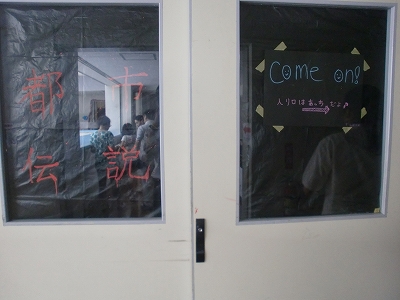 都市
伝説
Come on!
入り口はあっちだよ♪